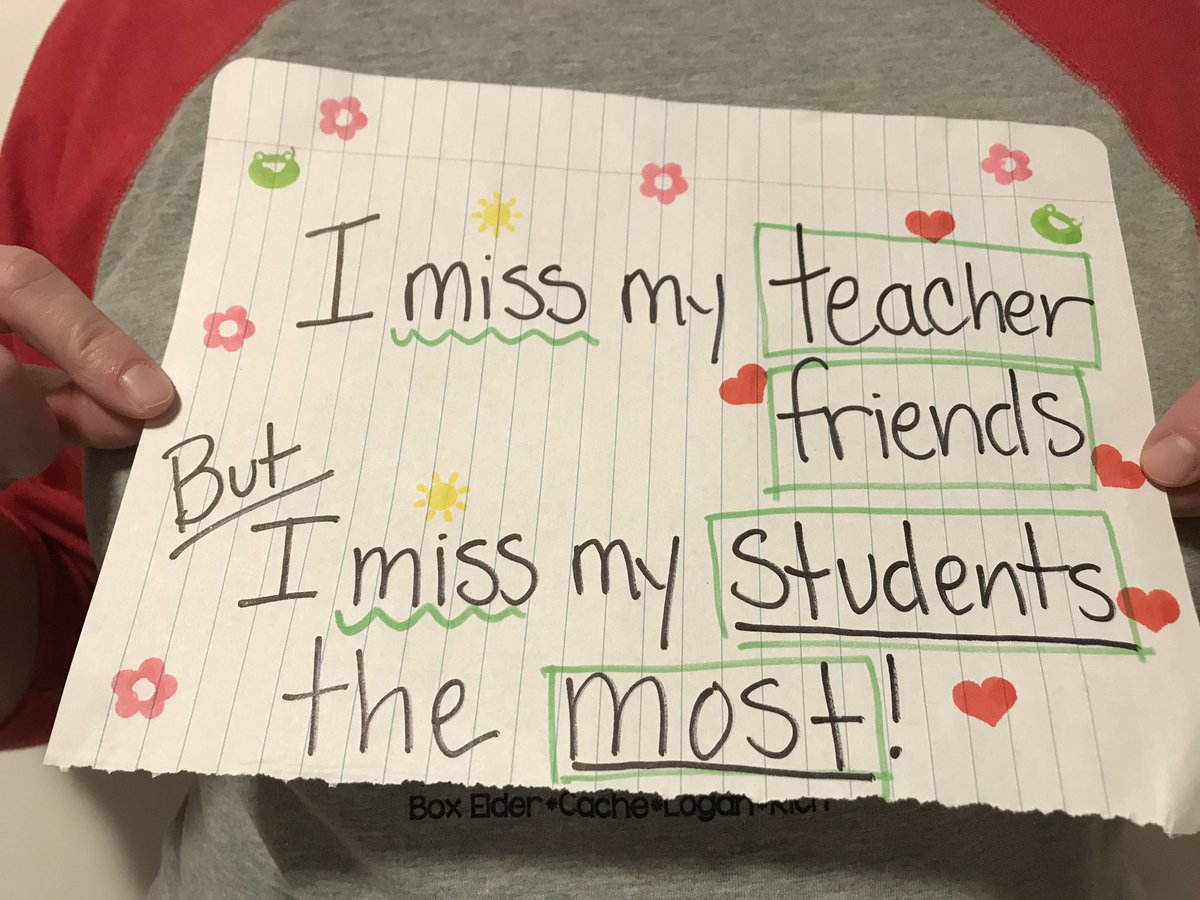 I miss my teacher
friends
But
I miss my students
the most!
Box Elder*Cache*Logan*Rich